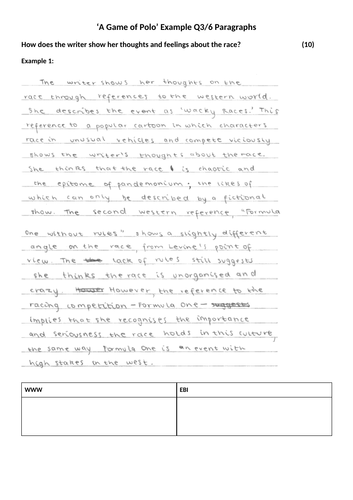 'A Game of Polo' Example Q3/6 Paragraphs
How does the writer show her thoughts and feelings about the race? (10)
Example 1:
The writer shows her thoughts on the
race through references to the western world.
She describes the event as 'Wacky Races.' This
reference to a popular cartoon in which characters
race in unusual vehicles and compete viciously
shows the writer's thoughts about the race.
She thinks that the race is chaotic and
the epitome of pandemonium; the likes of
which can only be described by a fictional
show. The second western reference, "Formula
One without rules" shows a slightly different
angle on the race, from Levine's point of
view. The lack of rules still suggests
she thinks the race is unorganised and
crazy However the reference to the
racing competition - Formula One - suggests
implies that she recognises the importance
and seriousness the race holds in this culture,
the same way Formula One is an event with
high stakes in the west.
WWW EBI